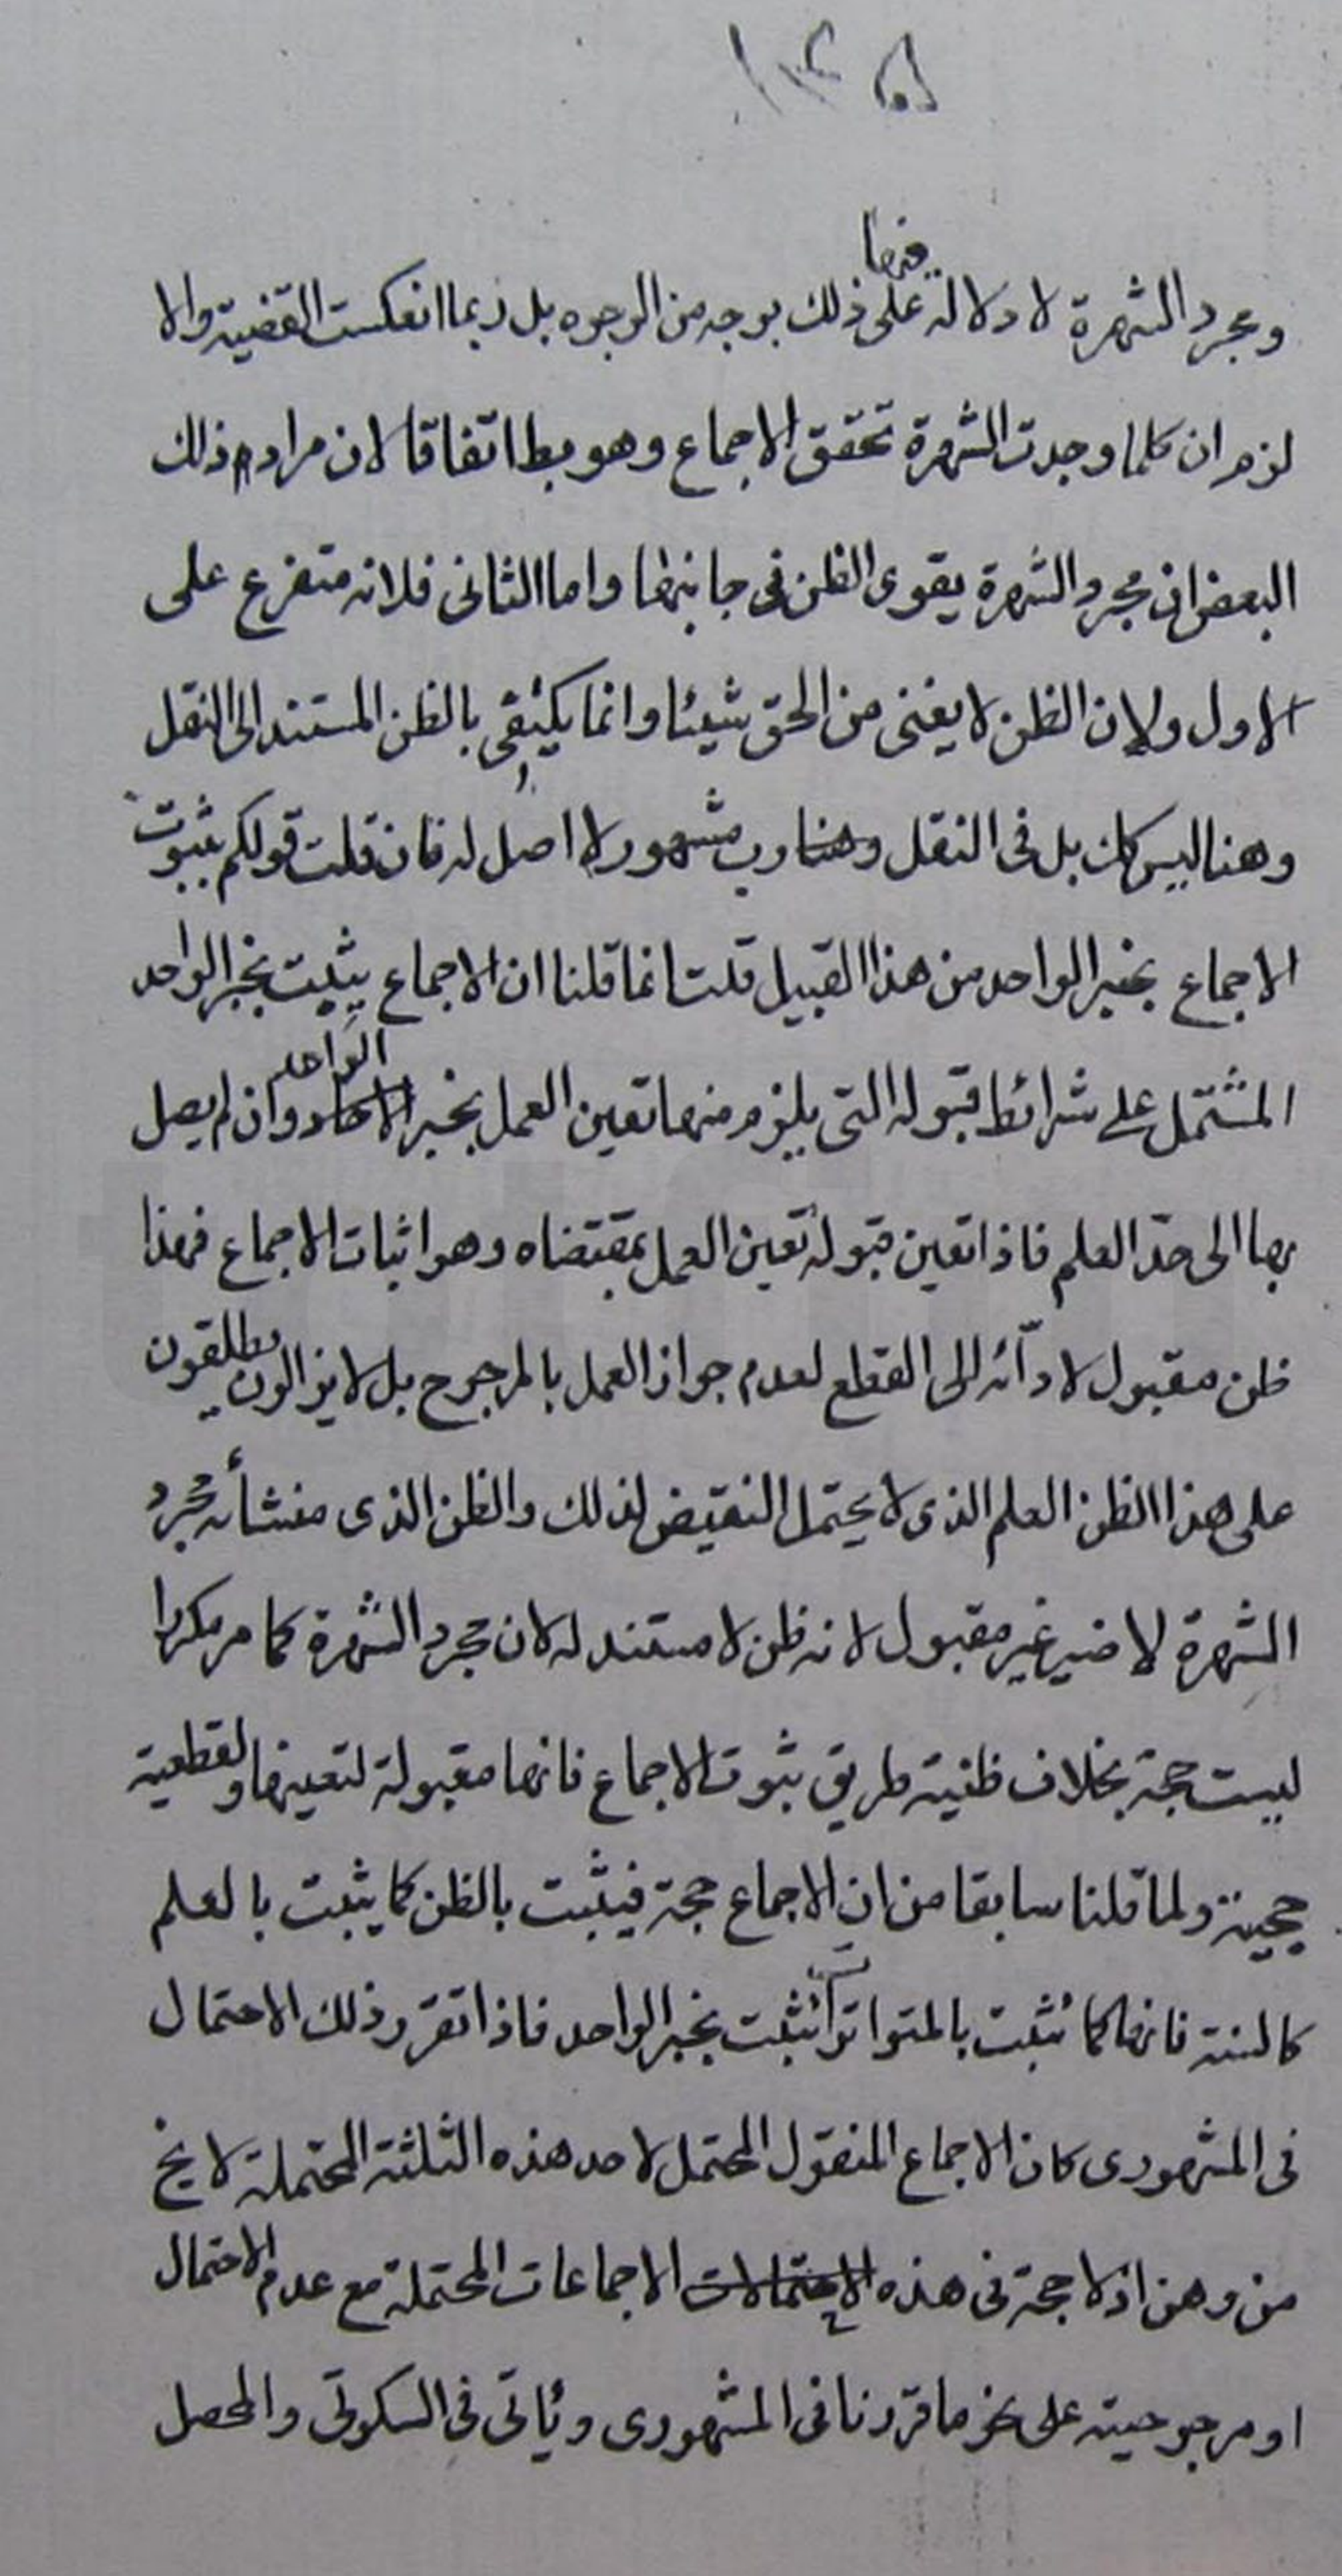 ومجرد الشهرة لا دلالة فيها على ذلك بوجه من الوجوه بل ربما انعكست القضية والا
لزم ان كلما وجدت الشهرة تحقق الاجماع وهو بط اتفاقا لان مراد ذلك
البعض ان مجرد الشهرة يقوى الظن فى جانبها واما الثانى فلانه متفرع على
الاول ولان الظن لا يغنى من الحق شيئا وانما يكتفى بالظن المستند الى النقل
وهنا ليس كك بل فى النقل ورب مشهور لا اصل له فان قلت قولكم بثبوت
الاجماع بخبر الواحد من هذا القبيل قلت انما قلنا ان الاجماع يثبت بخبر الواحد
المشتمل على شرائط قبوله التى يلزم منها تعين العمل بخبر الواحد وان لم يصل
بها الى حدّ العلم فاذا تعين قبوله تعين العمل بمقتضاه وهو اثبات الاجماع فهذا
ظن مقبول لادآئه الى القطع لعدم جواز العمل بالمرجوح بل لا يزالون يطلقون
على هذا الظن العلم الذى لا يحتمل النقيض لذلك والظن الذى منشأه مجرد
الشهرة لا ضير غير مقبول لانه ظن لا مستند له لان مجرد الشهرة كما مر مكررا
ليست حجة بخلاف ظنية طريق ثبوت الاجماع فانها مقبولة لتعينها ولقطعية
حجيته ولما قلنا سابقا من ان الاجماع حجة فيثبت بالظن كما يثبت بالعلم
كالسنة فانها كما تثبت بالمتواتر تثبت بخبر الواحد فاذا تقرر ذلك الاحتمال
فى المشهورى كان الاجماع المنقول المحتمل لاحد هذه الثلثة المحتملة لا يخ
من وهن اذ لا حجة فى هذه الاجماعات المحتملة مع عدم الاحتمال
او مرجوحيته على نحو ما قررنا فى المشهورى ويأتى فى السكوتى والمحصل